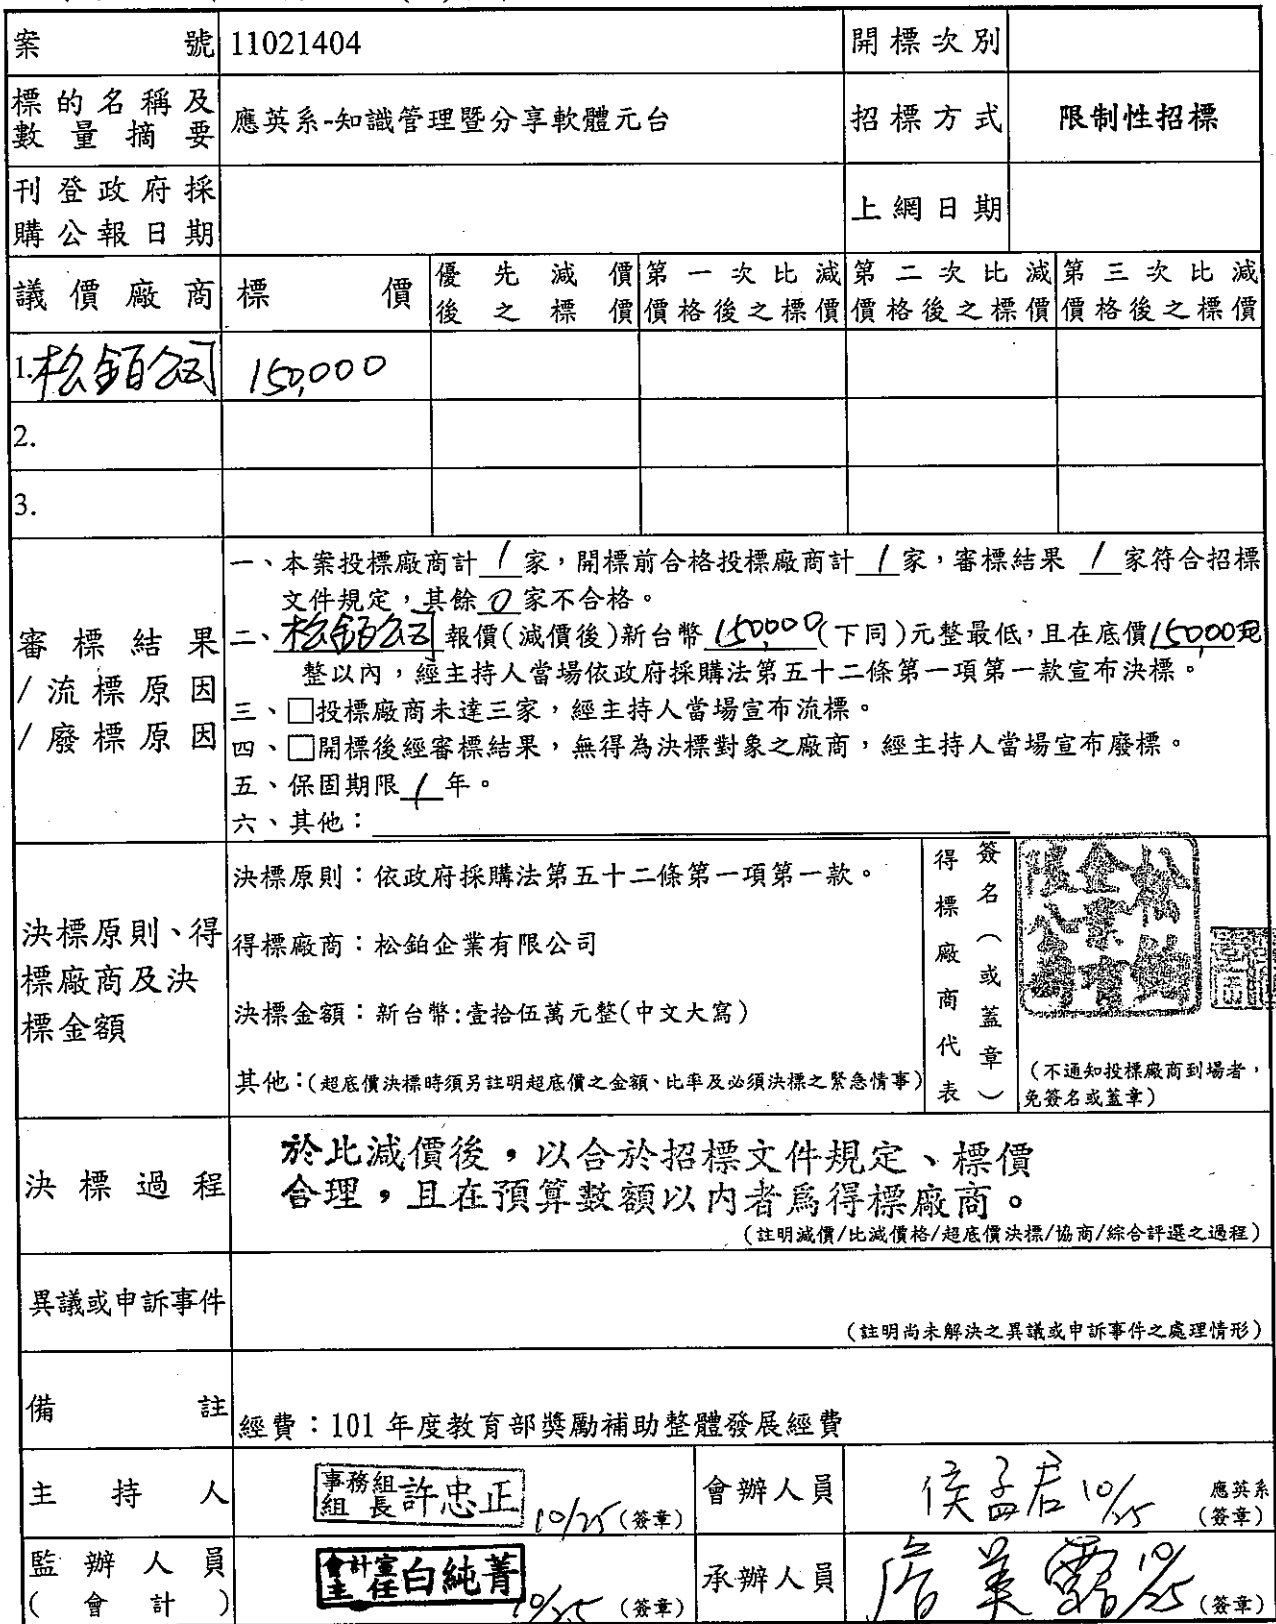 案號 11021404 開標次別
標的名稱及數量摘要 應英系-知識管理暨分享軟體元台 招標方式 限制性招標
刊登政府採購公報日期 上網日期
議價廠商 標價 優先減價後之標價 第一次比減價格後之標價 第二次比減價格後之標價 第三次比減價格後之標價
1.松鉑公司 150,000
2.
3.
審標結果/流標原因/廢標原因
一、本案投標廠商計 1 家,開標前合格投標廠商計 1 家,審標結果 1 家符合招標
文件規定,其餘 0 家不合格。
二、松鉑公司報價(減價後)新台幣 150,000 (下同)元整最低,且在底價 150,000元
整以內,經主持人當場依政府採購法第五十二條第一項第一款宣布決標。
三、□投標廠商未達三家,經主持人當場宣布流標。
四、□開標後經審標結果,無得為決標對象之廠商,經主持人當場宣布廢標。
五、保固期限 1 年。
六、其他:
決標原則、得標廠商及決標金額
決標原則:依政府採購法第五十二條第一項第一款。
得標廠商:松鉑企業有限公司
決標金額:新台幣:壹拾伍萬元整(中文大寫)
其他:(超底價決標時須另註明超底價之金額、比率及必須決標之緊急情事)
得標廠商代表
簽名(或蓋章)
松鉑企業有限公司
(不通知投標廠商到場者,
免簽名或蓋章)
決標過程
於比減價後,以合於招標文件規定、標價
合理,且在預算數額以內者為得標廠商。
(註明減價/比減價格/超底價決標/協商/綜合評選之過程)
異議或申訴事件
(註明尚未解決之異議或申訴事件之處理情形)
備註 經費:101 年度教育部獎勵補助整體發展經費
主持人 事務組組長 許忠正 10/25 (簽章) 會辦人員 侯孟君 10/25 應英系 (簽章)
監辦人員(會計) 會計室主任 白純菁 10/25 (簽章) 承辦人員 詹美露 10/25 (簽章)